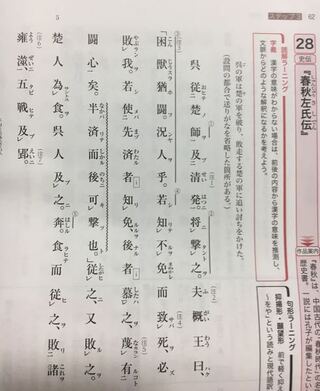 ステップ3 62
28 史伝
『春秋左氏伝』
作品案内
『春秋』は、中国古代の
歴史書。
読解ラーニング
字義 漢字の意味がわからない場合は、前後の内容から漢字の意味を推測し、
文脈からどのような解釈になるかを考えよう。
句形ラーニング
抑揚形・願望形
呉の軍は楚の軍を破り、敗走する楚の軍に追い討ちをかけた。
(設問の都合で送りがなを省略した箇所がある。)
呉従楚師、及清発。将撃之。夫概王曰、
「困獣猶闘。況人乎。若知不免而致死、必
敗我。若使先済者知免、後者慕之、蔑有
闘心矣。半済而後可撃也。」従之、又敗之。
楚人為食。呉人及之。奔。食而従之、敗諸
雍澨。五戦及郢。
5